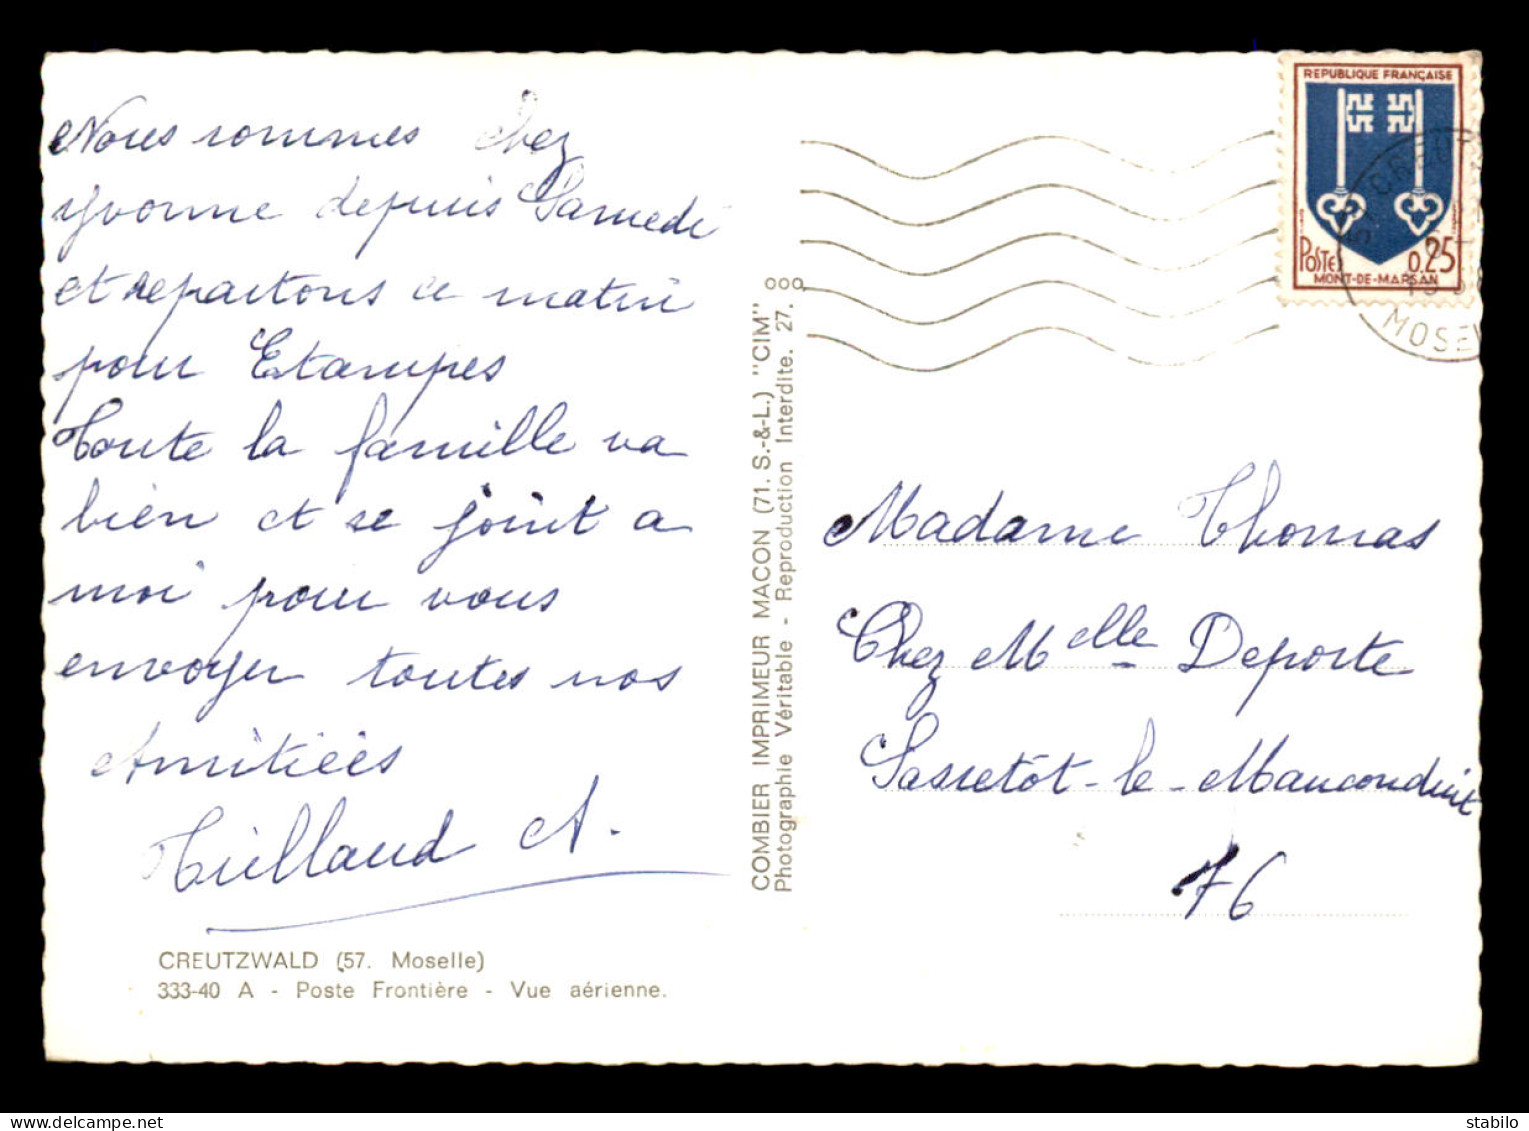 Nous sommes chez
Yvonne depuis Samedi
et repartons ce matin
pour Etampes
Toute la famille va
bien et se joint a
moi pour vous
envoyer toutes nos
Amitiées
A.
CREUTZWALD (57. Moselle)
333-40 A - Poste Frontière - Vue aérienne.
COMBIER IMPRIMEUR MACON (71. S.-&-L.) "CIM"
Photographie Véritable - Reproduction Interdite. 27.
REPUBLIQUE FRANÇAISE
POSTES 0,25
MONT-DE-MARSAN
MOSE
Madame Thomas
Chez Melle Deporte
Sassetôt-le-Mauconduit
76
www.delcampe.net
stabilo